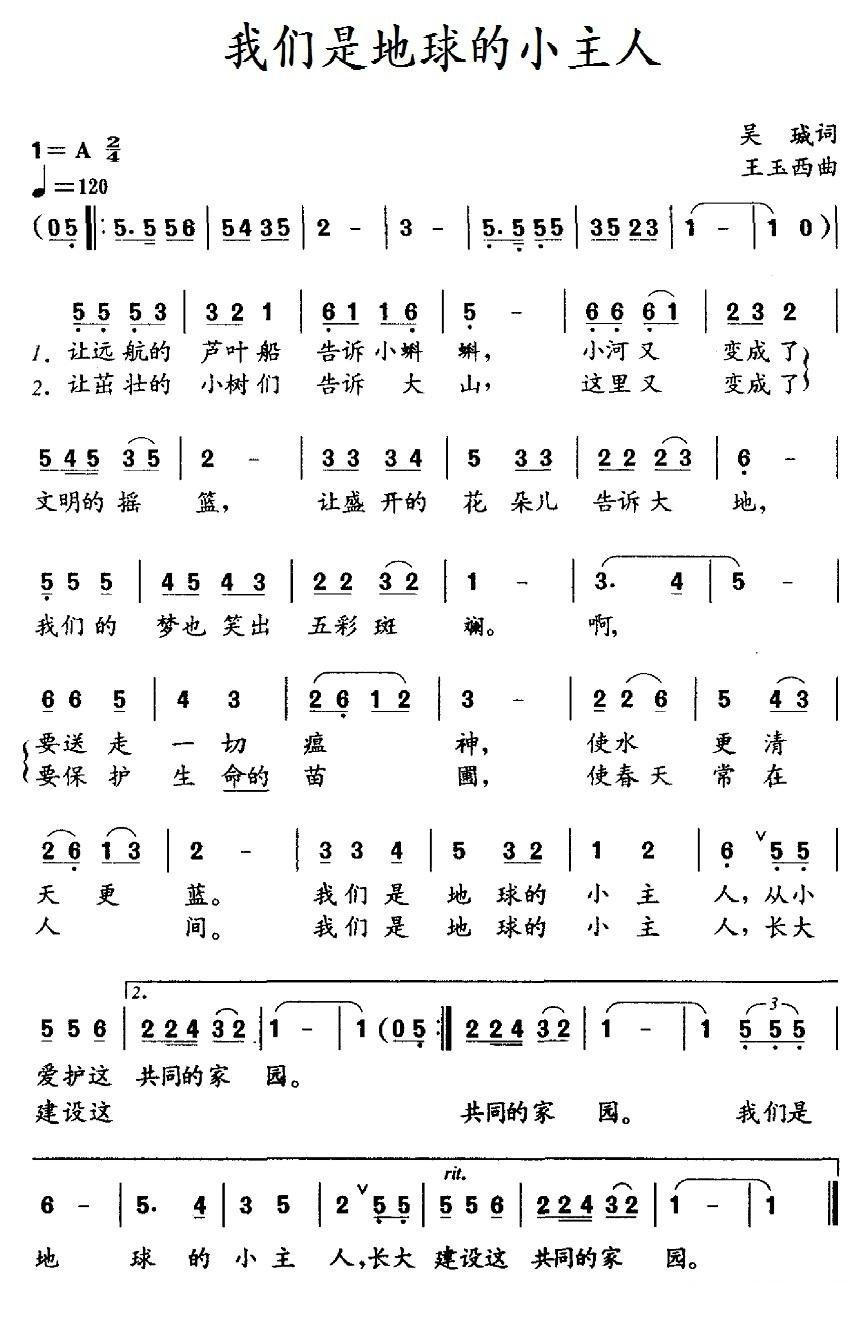 我们是地球的小主人
1=A 2/4
♩=120
吴 珹词
王玉西曲
(0 5 ‖: 5. 5 5 5 6 | 5 4 3 5 | 2 - | 3 - | 5. 5 5 5 | 3 5 2 3 | 1 - | 1 0 ) |
5 5 5 3 | 3 2 1 | 6 1 1 6 | 5 - | 6 6 6 1 | 2 3 2 |
1. 让远航的 芦叶船 告诉小蝌 蝌, 小河又 变成了
2. 让茁壮的 小树们 告诉大 山, 这里又 变成了
5 4 5 3 5 | 2 - | 3 3 3 4 | 5 3 3 | 2 2 2 3 | 6 - |
文明的摇 篮, 让盛开的 花朵儿 告诉大 地,
5 5 5 | 4 5 4 3 | 2 2 3 2 | 1 - | 3. 4 | 5 - |
我们的 梦也笑出 五彩斑 斓。 啊,
6 6 5 | 4 3 | 2 6 1 2 | 3 - | 2 2 6 | 5 4 3 |
要送走 一切 瘟 神, 使水 更清
要保护 生命的 苗 圃, 使春天 常在
2 6 1 3 | 2 - | 3 3 4 | 5 3 2 | 1 2 | 6 ∨ 5 5 |
天更 蓝。 我们是 地球的 小主 人, 从小
人 间。 我们是 地球的 小主 人, 长大
2.
5 5 6 | 2 2 4 3 2 | 1 - | 1 (0 5 :‖ 2 2 4 3 2 | 1 - | 1 3 5 5 5 |
爱护这 共同的家 园。
建设这 共同的家 园。 我们是
rit.
6 - | 5. 4 | 3 5 | 2 ∨ 5 5 | 5 5 6 | 2 2 4 3 2 | 1 - | 1 ‖
地 球的 小主 人, 长大 建设这 共同的家 园。